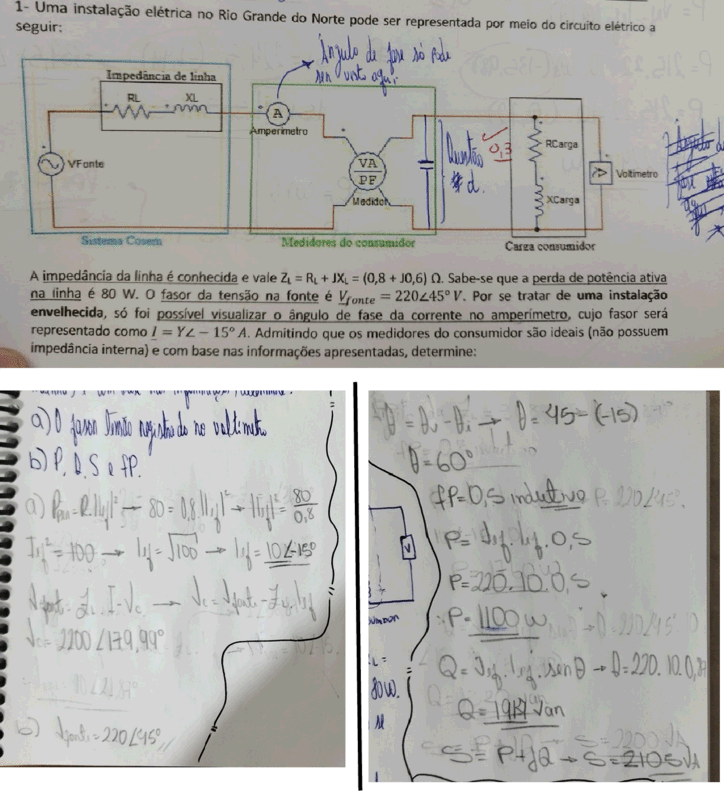 1- Uma instalação elétrica no Rio Grande do Norte pode ser representada por meio do circuito elétrico a
seguir:
Ângulo de fase só pode
ser visto aqui
Impedância de linha
RL
XL
A
Amperímetro
VFonte
VA
PF
Medidor
Questão
d.
0,3
RCarga
XCarga
Voltímetro
Sistema Cosern
Medidores do consumidor
Carga consumidor
A impedância da linha é conhecida e vale ZL = RL + JXL = (0,8 + J0,6) Ω. Sabe-se que a perda de potência ativa
na linha é 80 W. O fasor da tensão na fonte é Vfonte = 220∠45° V. Por se tratar de uma instalação
envelhecida, só foi possível visualizar o ângulo de fase da corrente no amperímetro, cujo fasor será
representado como I = Y∠ − 15° A. Admitindo que os medidores do consumidor são ideais (não possuem
impedância interna) e com base nas informações apresentadas, determine:
a) O fasor tensão registrado no voltímetro
b) P, Q, S e fP.
a) P = R.|Ief|² → 80 = 0,8.|Ief|² → |Ief|² = 80/0,8
Ief² = 100 → Ief = √100 → Ief = 10∠-15°
Vfonte = ZL . I - Vc → Vc = Vfonte - ZL.Ief
Vc = 2200∠179,99°
Vfonte = 220∠45°
θ = θv - θi → θ = 45 - (-15)
θ = 60°
fP = 0,5 indutivo
P = Vef . Ief . 0,5
P = 220 . 10 . 0,5
∴ P = 1100 W
V
Q = Vef . Ief . sen θ → Q = 220 . 10 . 0,8
80W.
se
S = P + jQ → S = 2105 VA